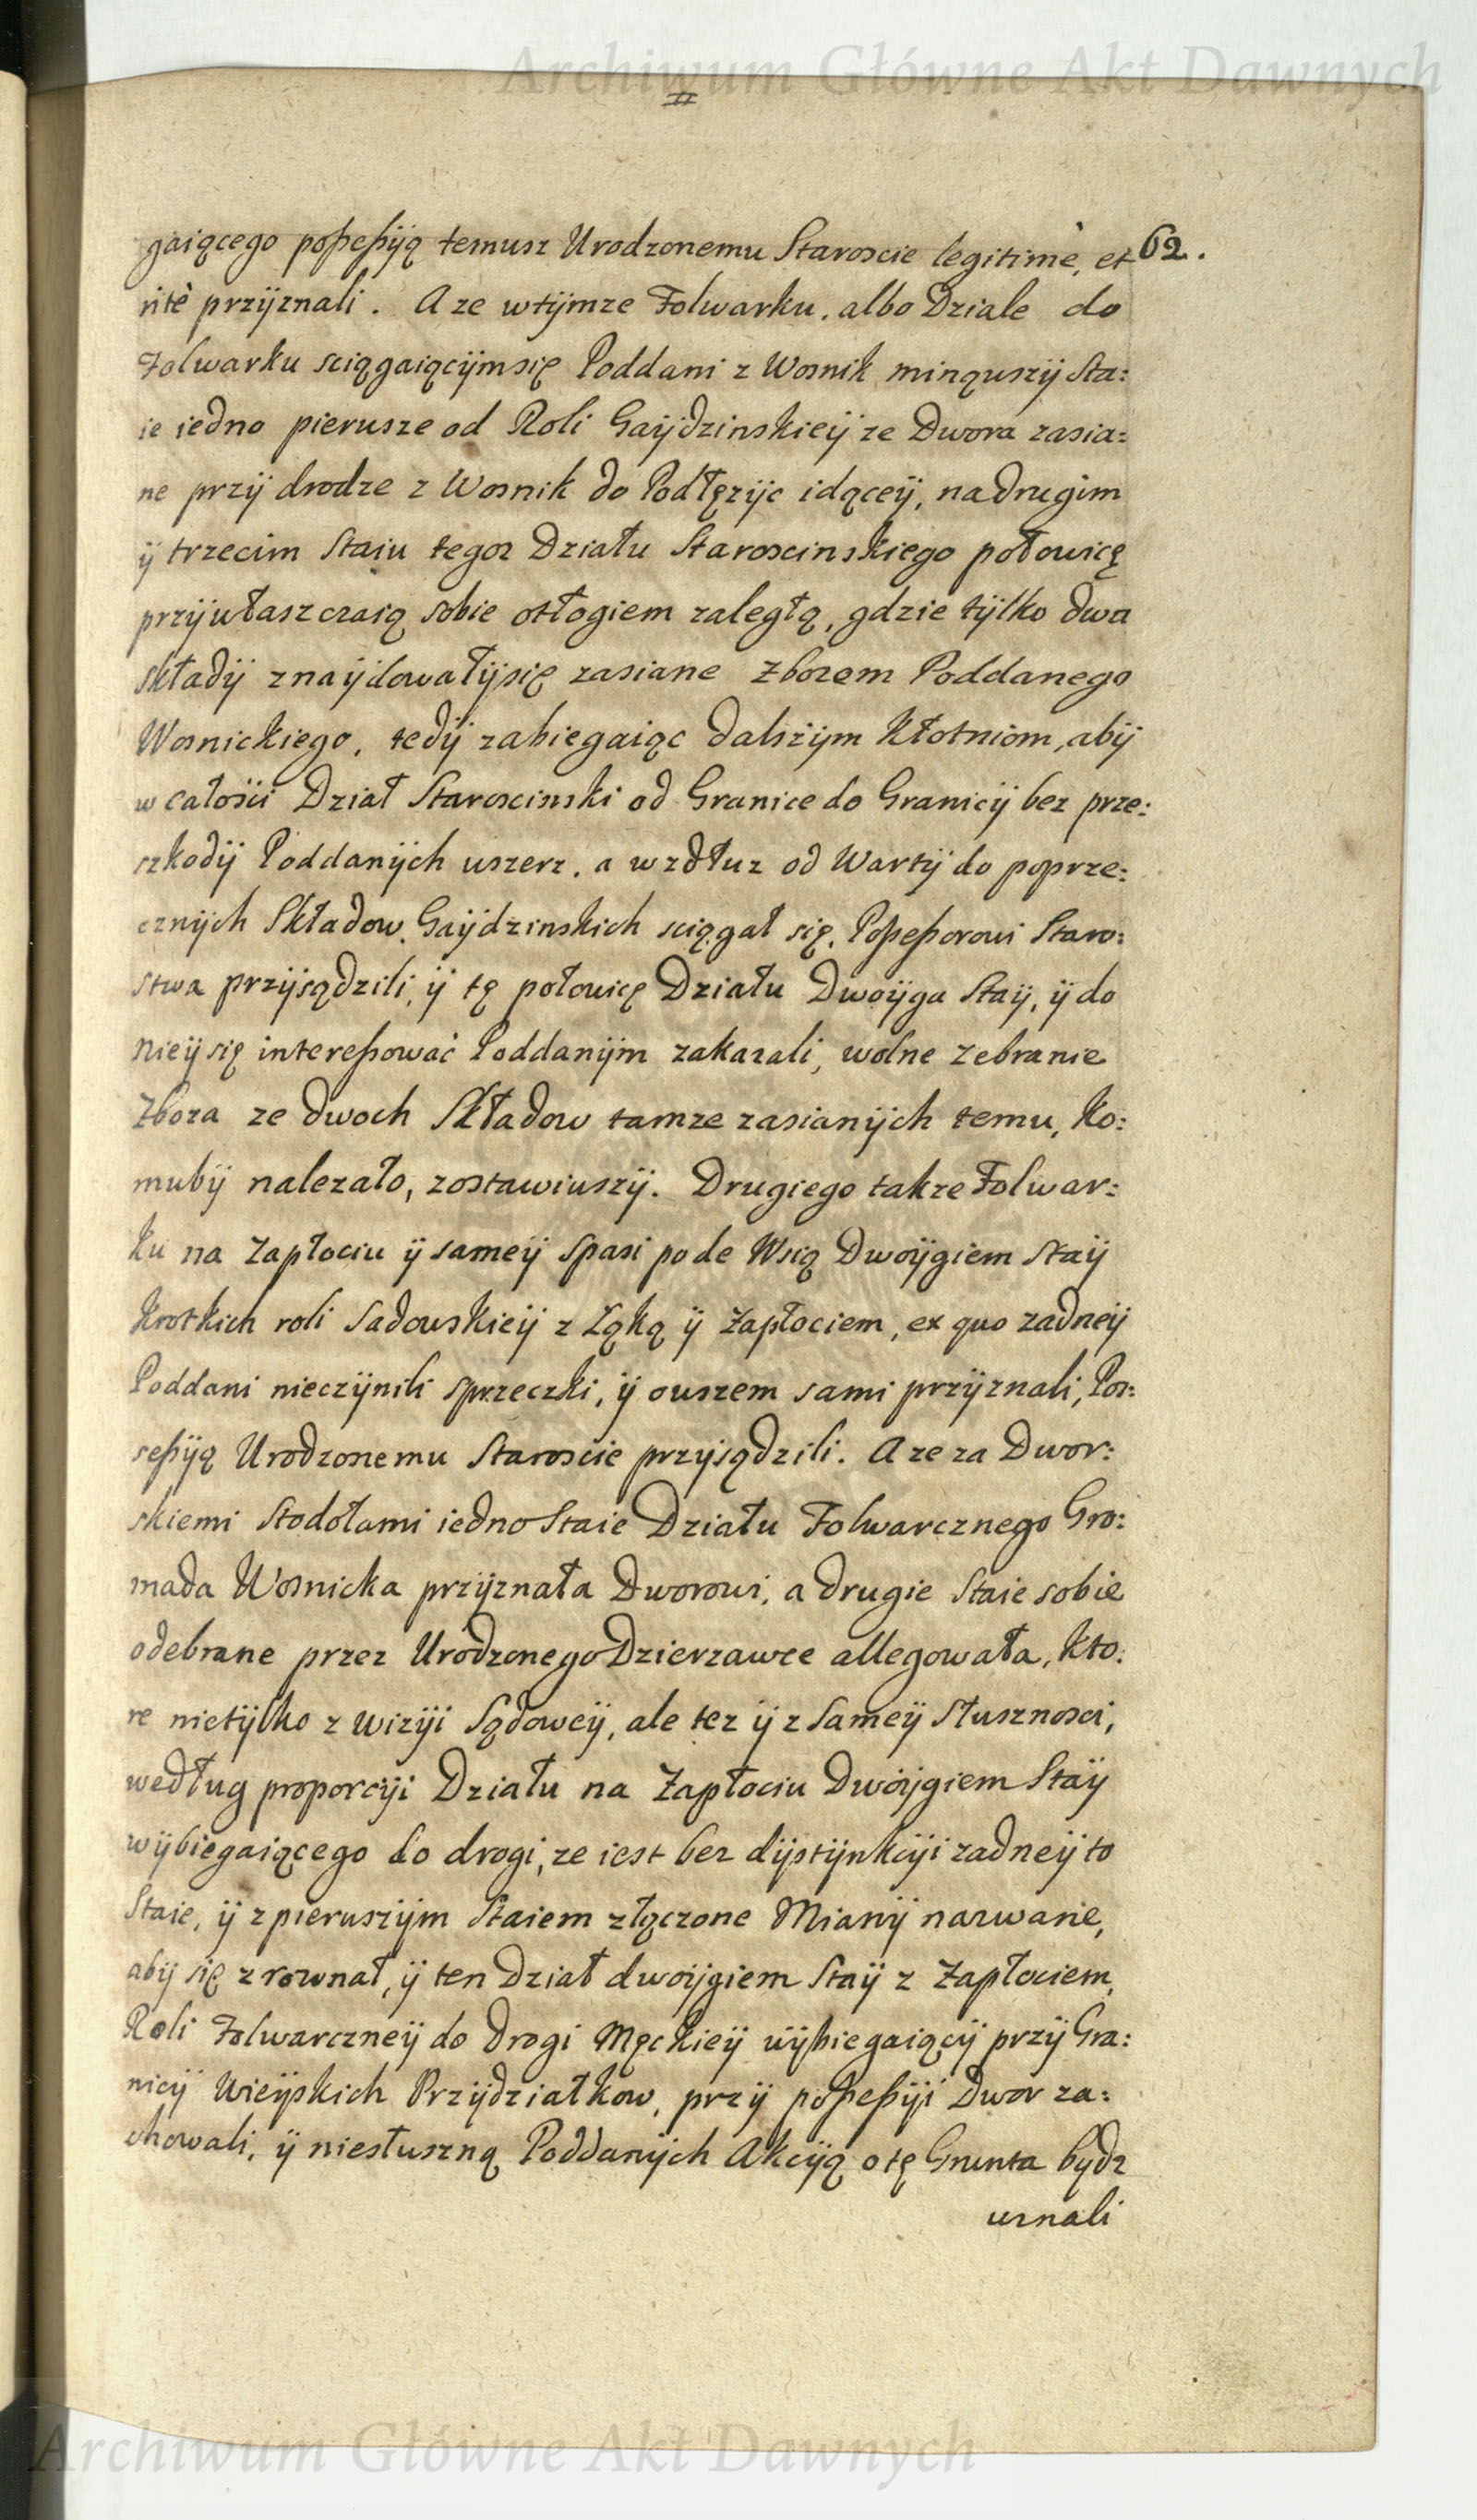 Archiwum Główne Akt Dawnych
II
gaiącego poßeßyią temusz Urodzonemu Staroscie legitimè, et 62.
ritè przÿznali. A ze wtÿmze Folwarku, albo Dziale do
Folwarku sciągaiącÿmsię Poddani z Wosnik minąwszÿ Sta:
ie iedno pierwsze od Roli Gaÿdzinskieÿ ze Dwora zasia:
ne przÿ drodze z Wosnik do Podłęzÿc idąceÿ, na drugim
ÿ trzecim Staiu tegoz Działu Staroscinskiego połowicę
przÿwłaszczaią sobie odłogiem zaległą, gdzie tÿlko dwa
składÿ znaÿdowałÿsię zasiane Zbozem Poddanego
Wosnickiego, tedÿ zabiegaiąc dalszÿm Kłotniom, abÿ
w całosci Dział Staroscinski od Granice do Granicÿ bez prze:
szkodÿ Poddanÿch wszerz, a wzdłuz od Wartÿ do poprze:
cznÿch Składow Gaÿdzinskich sciągał się, Poßeßorowi Staro:
stwa przÿsądzili, ÿ tę połowicę Działu Dwoÿga Staÿ, ÿ do
nieÿ się intereßować Poddanÿm zakazali, wolne zebranie
Zboza ze dwoch Składow tamze zasianÿch temu, Ko:
mubÿ nalezało, zostawiwszÿ. Drugiego takze Folwar:
ku na Zapłociu ÿ sameÿ Spasi pode Wsią Dwoÿgiem Staÿ
Krotkich roli Sadowskieÿ z Łąką ÿ Zapłociem, ex quo zadneÿ
Poddani nieczÿnili sprzeczki, ÿ owszem sami przÿznali, Pos:
seßÿą Urodzonemu Staroscie przÿsądzili. A ze za Dwor:
skiemi Stodołami iedno Staie Działu Folwarcznego Gro:
mada Wosnicka przÿznała Dworowi, a drugie Staie sobie
odebrane przez Urodzonego Dzierzawce allegowała, Kto:
re nietÿlko z wizÿi Sądoweÿ, ale tez ÿ z Sameÿ Słusznosci,
według proporcÿi Działu na Zapłociu Dwoÿgiem Staÿ
wÿbiegaiącego do drogi, ze iest bez dÿstÿnkcÿi zadneÿ to
Staie, ÿ z pierwszÿm Staiem złączone Mianÿ nazwanie,
abÿ się zrownał, ÿ ten Dział dwoÿgiem Staÿ z Zapłociem,
Roli Folwarczneÿ do Drogi Męckieÿ wÿbiegaiącÿ przÿ Gra:
nicÿ Wieÿskich Przÿdziałkow, przÿ poßeßÿi Dwor za:
chowali, ÿ niesłuszną Poddanÿch Akcÿą o tę Grunta bÿdz
uznali
Archiwum Główne Akt Dawnych